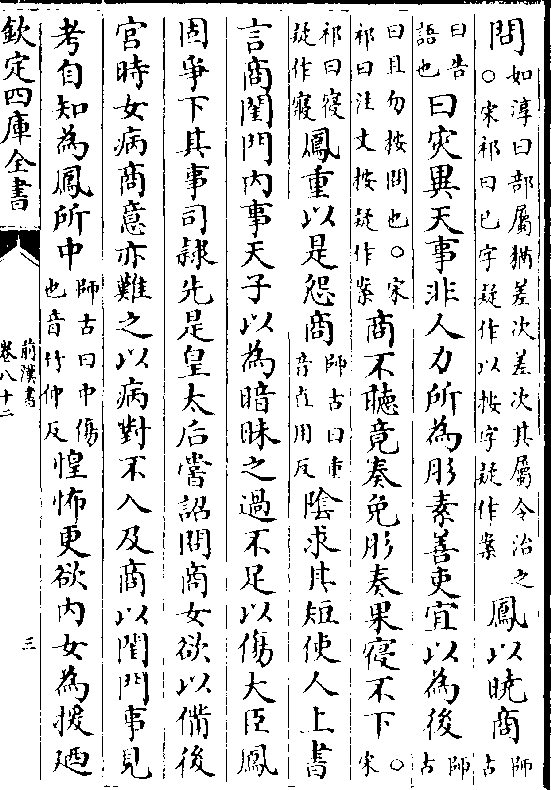 問如淳曰部屬猶差次差次其屬令治之○宋祁曰已字疑作以按字疑作案鳳以曉商師古
曰告語也曰災異天事非人力所為肜素善吏宜以為後師古
曰且勿按問也○宋祁曰注文按疑作案商不聽竟奏免肜奏果寑不下○宋
祁曰寑疑作寢鳳重以是怨商師古曰重音直用反陰求其短使人上書
言商閨門内事天子以為暗昧之過不足以傷大臣鳳
固爭下其事司隸先是皇太后嘗詔問商女欲以備後
宮時女病商意亦難之以病對不入及商以閨門事見
考自知為鳳所中師古曰中傷也音竹仲反惶怖更欲内女為援廼
欽定四庫全書
前漢書
卷八十二
三